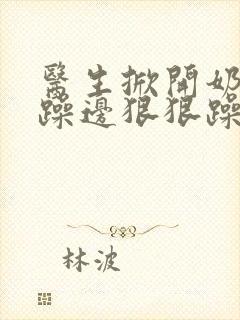 醫生掀開奶
躁邊狠狠躁
林波